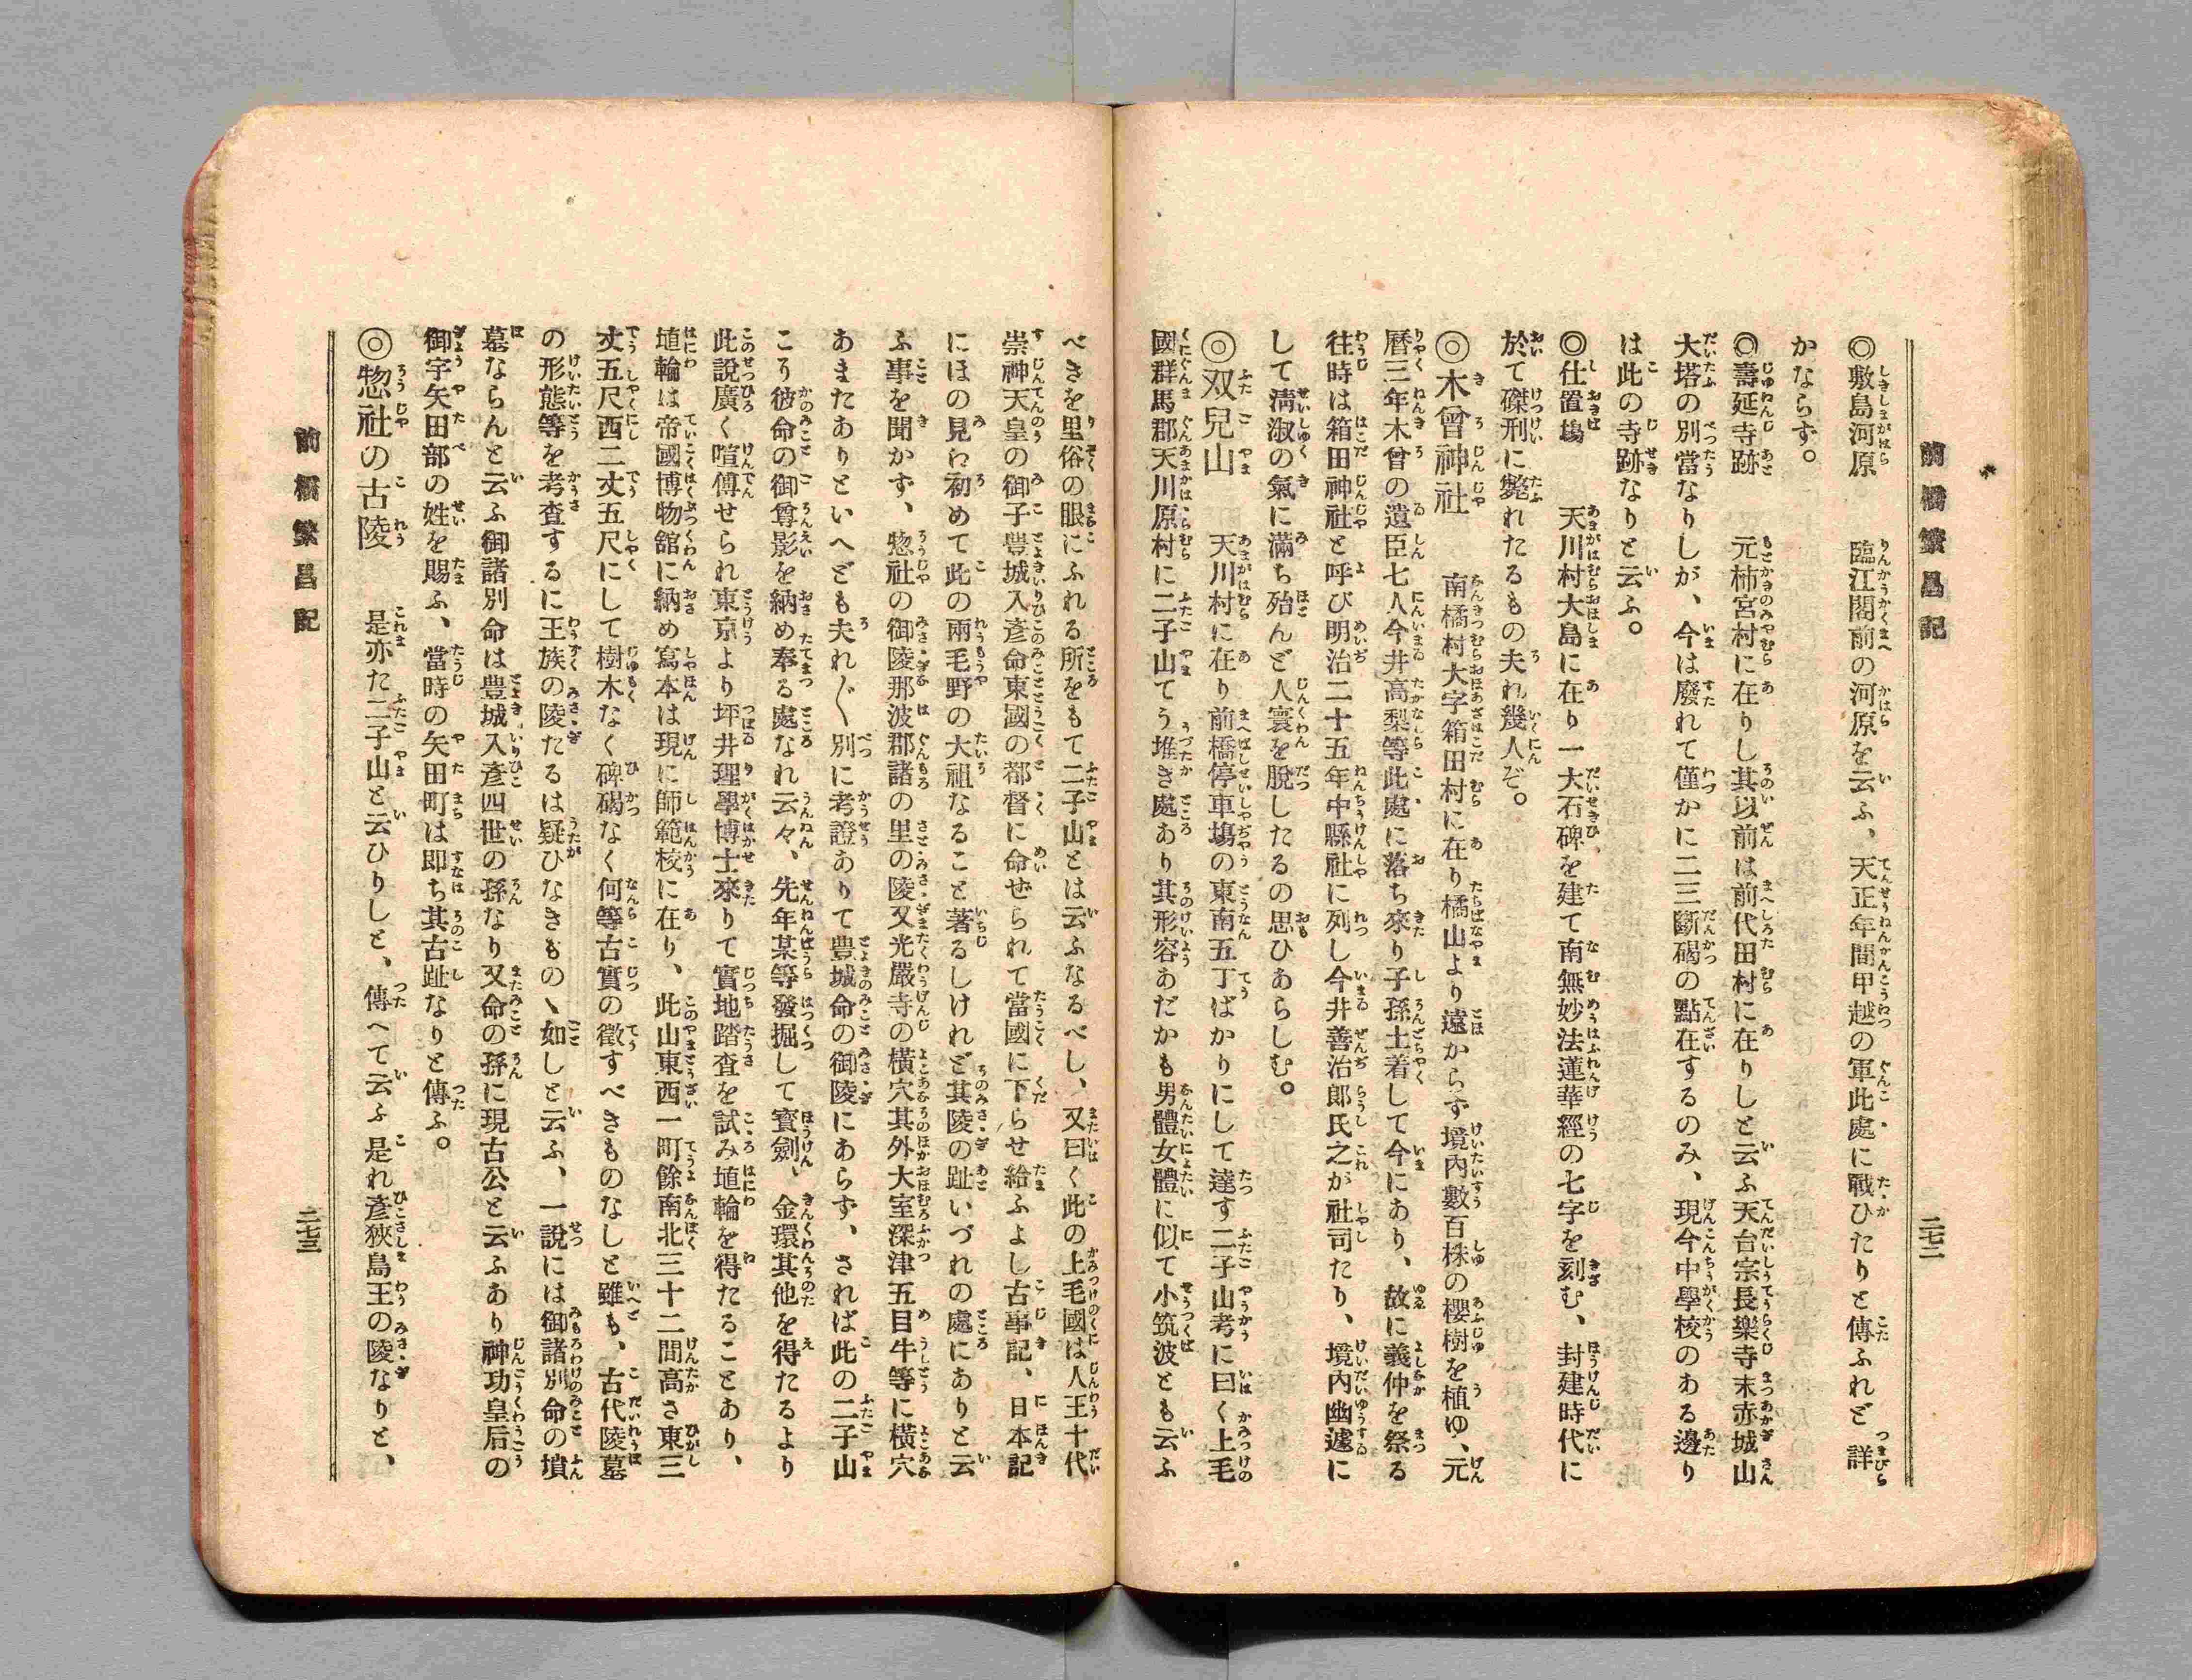 前橋繁昌記
二七二
◎敷島河原　臨江閣前の河原を云ふ、天正年間甲越の軍此處に戰ひたりと傳ふれど詳
かならず。
◎壽延寺跡　元柿宮村に在りし其以前は前代田村に在りしと云ふ天台宗長樂寺末赤城山
大塔の別當なりしが、今は廢れて僅かに二三斷碣の點在するのみ、現今中學校のある邊り
は此の寺跡なりと云ふ。
◎仕置塲　天川村大島に在り一大石碑を建て南無妙法蓮華經の七字を刻む、封建時代に
於て磔刑に斃れたるもの夫れ幾人ぞ。
◎木曾神社　南橘村大字箱田村に在り橘山より遠からず境內數百株の櫻樹を植ゆ、元
曆三年木曾の遺臣七人今井高梨等此處に落ち來り子孫土着して今にあり、故に義仲を祭る
往時は箱田神社と呼び明治二十五年中縣社に列し今井善治郎氏之が社司たり、境內幽邃に
して淸淑の氣に滿ち殆んど人寰を脫したるの思ひあらしむ。
◎双兒山　天川村に在り前橋停車塲の東南五丁ばかりにして達す二子山考に曰く上毛
國群馬郡天川原村に二子山てう堆き處あり其形容あだかも男體女體に似て小筑波とも云ふ
べきを里俗の眼にふれる所をもて二子山とは云ふなるべし、又曰く此の上毛國は人王十代
崇神天皇の御子豊城入彥命東國の都督に命ぜられて當國に下らせ給ふよし古事記、日本記
にほの見に初めて此の兩毛野の大祖なること著るしけれど其陵の趾いづれの處にありと云
ふ事を聞かず、惣社の御陵那波郡諸の里の陵又光嚴寺の橫穴其外大室深津五目牛等に橫穴
あまたありといへども夫れ〲別に考證ありて豊城命の御陵にあらず、されば此の二子山
ころ彼命の御尊影を納め奉る處なれ云々、先年某等發掘して寳劍、金環其他を得たるより
此說廣く喧傳せられ東京より坪井理學博士來りて實地踏査を試み埴輪を得たることあり、
埴輪は帝國博物舘に納め寫本は現に師範校に在り、此山東西一町餘南北三十二間高さ東三
丈五尺西二丈五尺にして樹木なく碑碣なく何等古實の徵すべきものなしと雖も、古代陵墓
の形態等を考査するに王族の陵たるは疑ひなきものゝ如しと云ふ、一說には御諸別命の墳
墓ならんと云ふ御諸別命は豊城入彥四世の孫なり又命の孫に現古公と云ふあり神功皇后の
御宇矢田部の姓を賜ふ、當時の矢田町は即ち其古趾なりと傳ふ。
◎惣社の古陵　是亦た二子山と云ひりしと、傳へて云ふ是れ彥狹島王の陵なりと、
前橋繁昌記
二七三